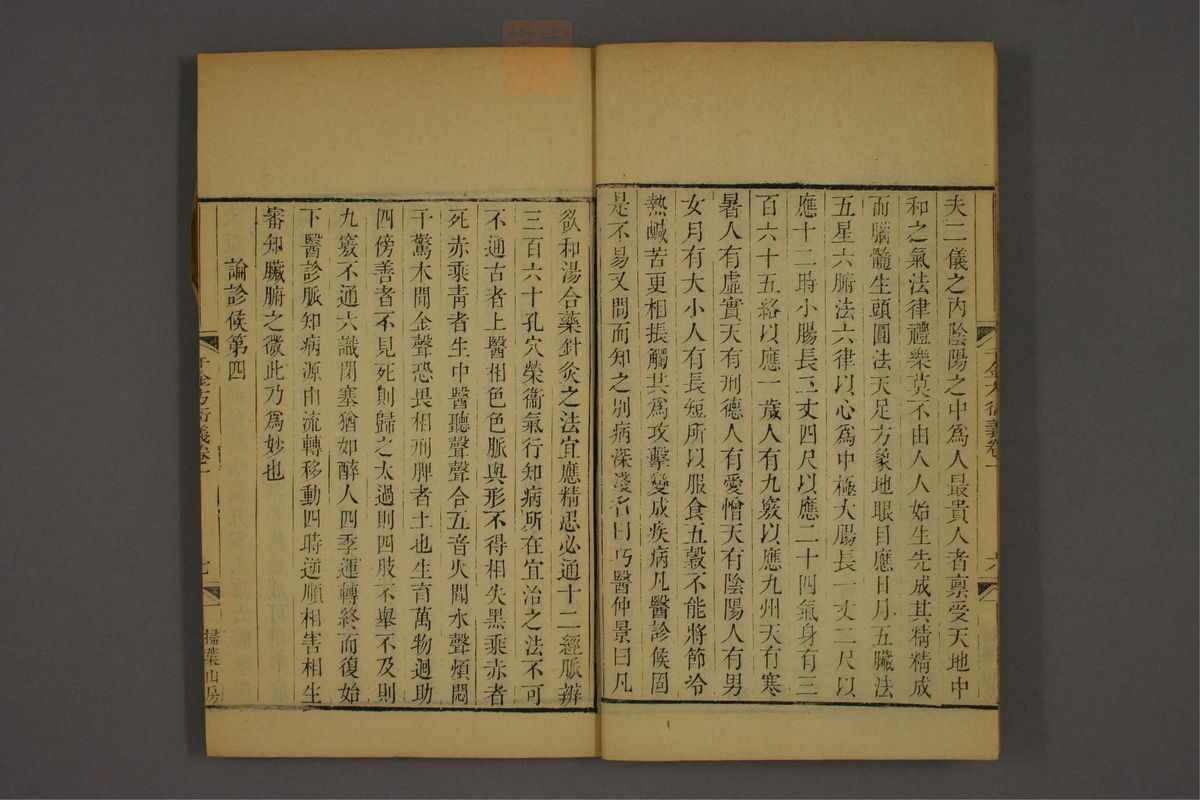 夫二儀之內陰陽之中爲人最貴人者禀受天地中
和之氣法律禮樂莫不由人人始生先成其精精成
而腦髓生頭圓法天足方象地眼目應日月五臟法
五星六腑法六律以心爲中極大腸長一丈二尺以
應十二時小腸長二丈四尺以應二十四氣身有三
百六十五絡以應一歲人有九竅以應九州天有寒
暑人有虛實天有刑德人有愛憎天有陰陽人有男
女月有大小人有長短所以服食五穀不能將節冷
熱鹹苦更相振觸共爲攻擊變成疾病凡醫診候固
是不易又問而知之别病深淺名曰巧醫仲景曰凡
千金方衍義卷一
六
欲和湯合藥針灸之法宜應精思必通十二經脈辨
三百六十孔穴榮衞氣行知病所在宜治之法不可
不通古者上醫相色色脈與形不得相失黑乘赤者
死赤乘青者生中醫聽聲聲合五音火聞水聲煩悶
干驚木聞金聲恐畏相刑脾者土也生育萬物迴助
四傍善者不見死則歸之太過則四肢不舉不及則
九竅不通六識閉塞猶如醉人四季運轉終而復始
下醫診脈知病源由流轉移動四時逆順相害相生
審知臟腑之微此乃爲妙也
論診候第四
千金方衍義卷一
七
掃葉山房